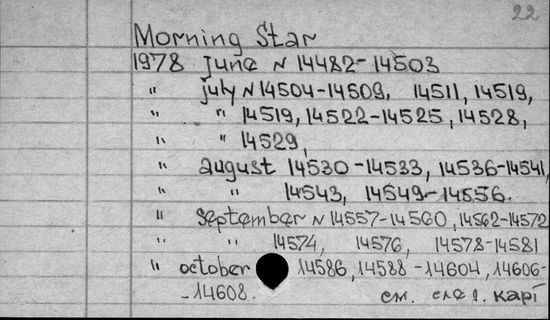 22
Morning Star
1978 June N 14482-14503
" july N 14504-14509, 14511, 14519,
" " 14519, 14522-14525, 14528,
" " 14529,
" august 14530-14533, 14536-14541,
" " 14543, 14549-14556.
" September N 14557-14560, 14562-14572
" " 14574, 14576, 14578-14581
" october 14586, 14588-14604, 14606-
-14608. см. след.